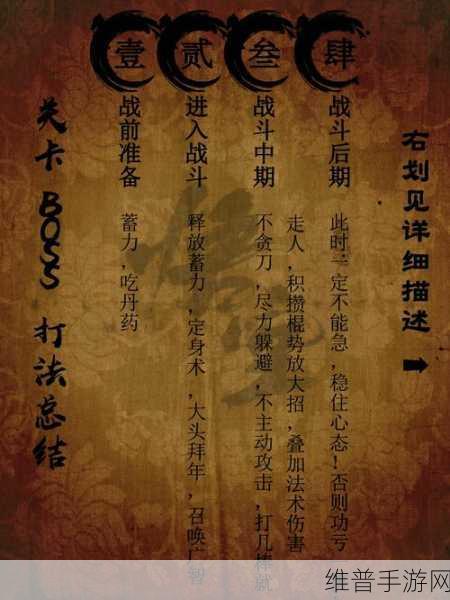 关卡 BOSS 打法总结
壹
战前准备
蓄力，吃丹药
贰
进入战斗
释放蓄力，定身术，大头拜年，召唤广智
叁
战斗中期
不贪刀，尽力躲避，不主动攻击，打几棒就
走人，积攒棍势放大招，叠加法术伤害
肆
战斗后期
此时一定不能急，稳住心态！否则功亏
右划见详细描述
维普手游网